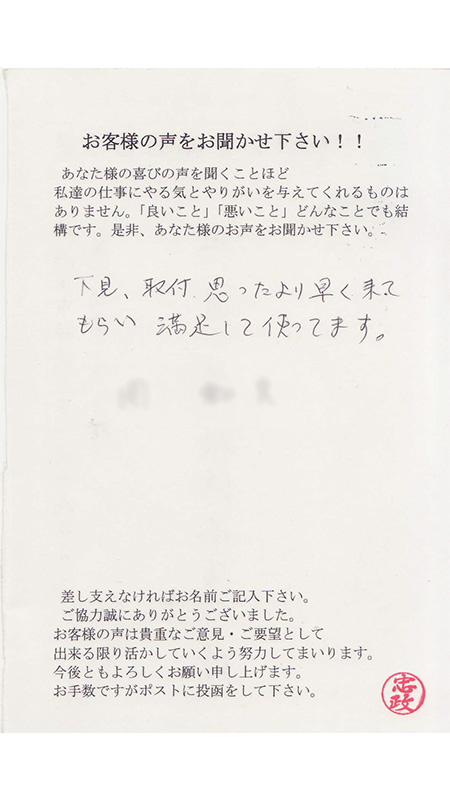 お客様の声をお聞かせ下さい！！
あなた様の喜びの声を聞くことほど
私達の仕事にやる気とやりがいを与えてくれるものは
ありません。「良いこと」「悪いこと」どんなことでも結
構です。是非、あなた様のお声をお聞かせ下さい。
下見、取付 思ったより早く来て
もらい 満足して使ってます。
差し支えなければお名前ご記入下さい。
ご協力誠にありがとうございました。
お客様の声は貴重なご意見・ご要望として
出来る限り活かしていくよう努力してまいります。
今後ともよろしくお願い申し上げます。
お手数ですがポストに投函をして下さい。
忠政